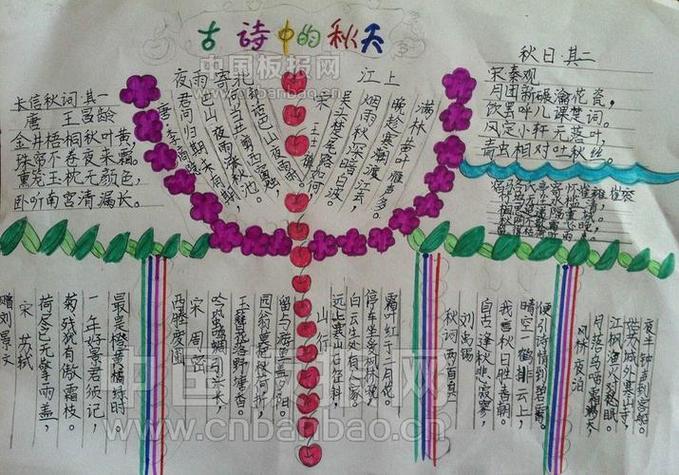 古诗中的秋天
中国板报网
长信秋词·其一
唐 王昌龄
金井梧桐秋叶黄,
珠帘不卷夜来霜。
熏笼玉枕无颜色,
卧听南宫清漏长。
夜雨寄北
唐·李商隐
君问归期未有期,
巴山夜雨涨秋池。
何当共剪西窗烛,
却话巴山夜雨时。
江上
宋
烟雨秋深暗白波。
晚趁寒潮渡江去,
满林黄叶雁声多。
秋日·其二
宋 秦观
月团新碾瀹花瓷,
饮罢呼儿课楚词。
风定小轩无落叶,
青虫相对吐秋丝。
赠刘景文
宋 苏轼
荷尽已无擎雨盖,
菊残犹有傲霜枝。
一年好景君须记,
最是橙黄橘绿时
西塍废圃
宋 周密
吟蛩鸣蜩引兴长,
玉簪花落野塘香。
园翁莫把秋荷折,
留与游鱼盖夕阳。
山行
远上寒山石径斜,
白云生处有人家。
停车坐爱枫林晚,
霜叶红于二月花。
秋词二首
刘禹锡
自古逢秋悲寂寥,
我言秋日胜春朝。
晴空一鹤排云上,
便引诗情到碧霄。
枫桥夜泊
月落乌啼霜满天,
江枫渔火对愁眠。
姑苏城外寒山寺,
夜半钟声到客船。
中国板报网
www.cnbanbao.cn